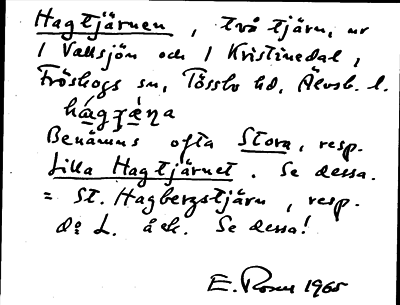 Hagtjärnen, två tjärn, nr
1 Vallsjön och 1 Kristinedal,
Fröskogs sn, Tössbo hd, Älvsb. l.
hágʃä̀ɳa
Benämns ofta Stora, resp.
Lilla Hagtjärnet. Se dessa.
= St. Hagbergstjärn, resp.
d:o L. åck. Se dessa!
E. Rosen 1965